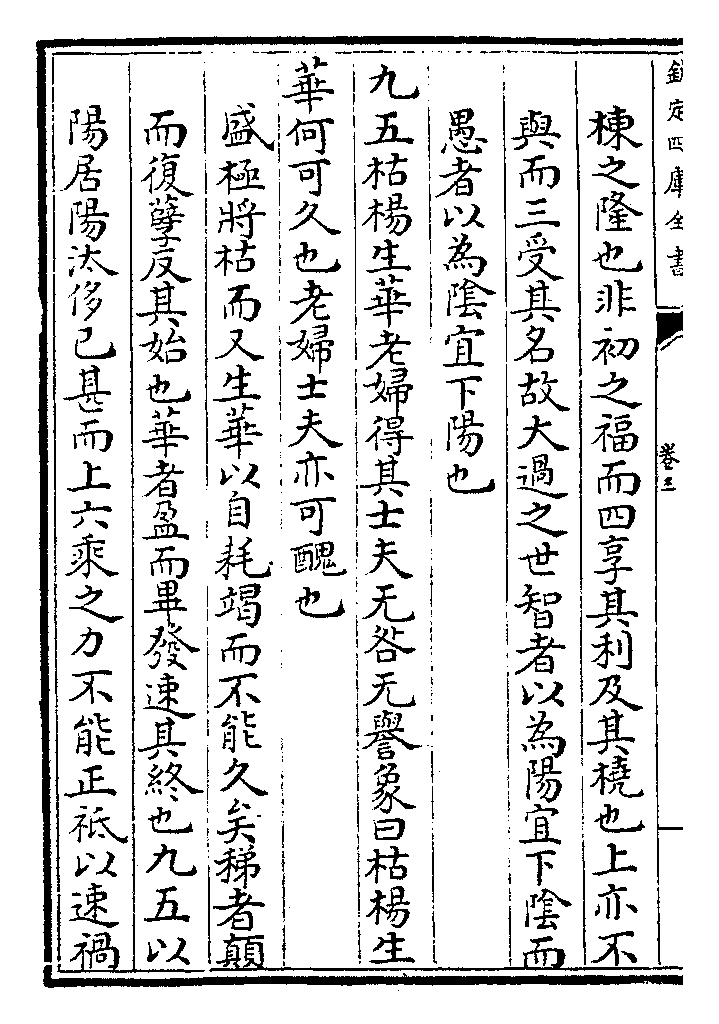 欽定四庫全書
卷三
棟之隆也非初之福而四享其利及其橈也上亦不
與而三受其名故大過之世智者以為陽宜下陰而
愚者以為陰宜下陽也
九五枯楊生華老婦得其士夫无咎无譽象曰枯楊生
華何可久也老婦士夫亦可醜也
盛極將枯而又生華以自耗竭而不能久矣稊者顛
而復孽反其始也華者盈而畢發速其終也九五以
陽居陽汰侈已甚而上六乘之力不能正祗以速禍